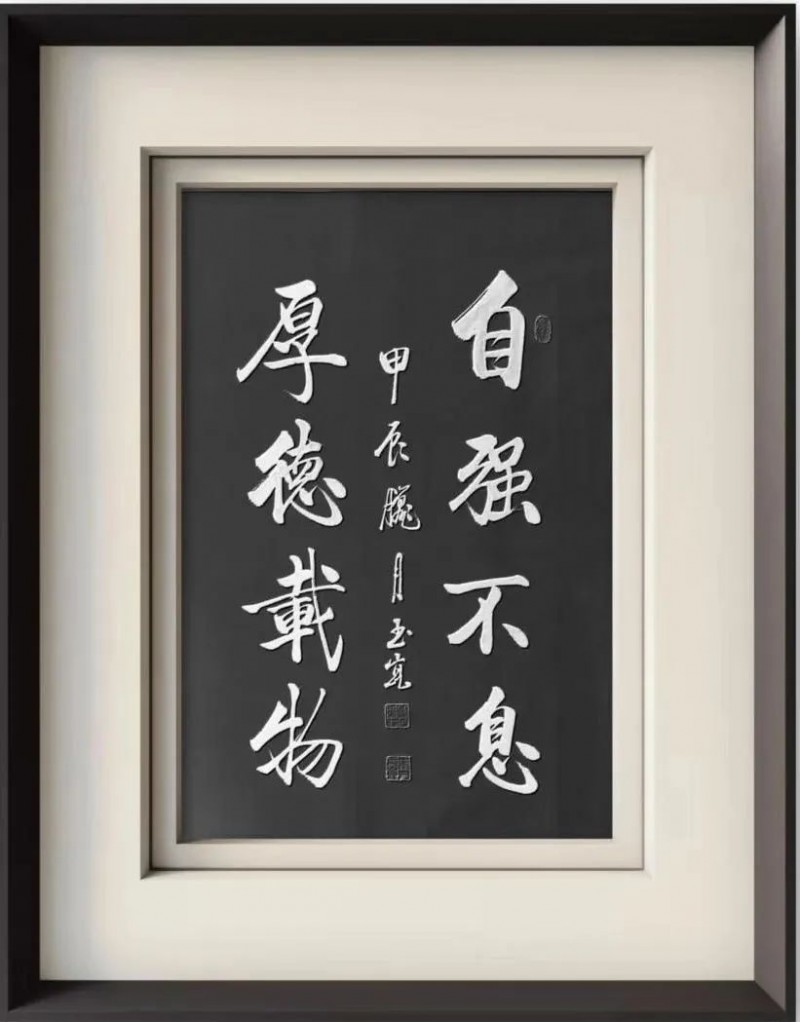 自强不息
厚德載物
甲辰臘月玉宽